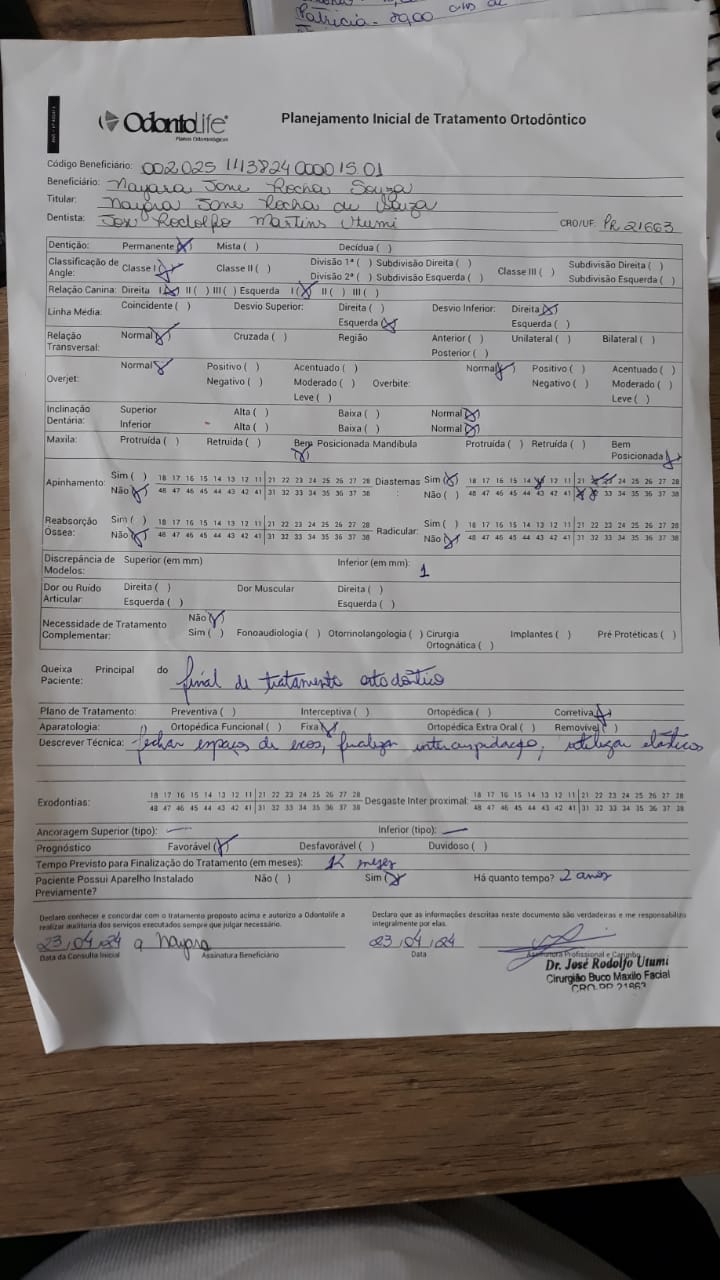 Patricia - 2900
OdontoLife
Planos Odontológicos
Planejamento Inicial de Tratamento Ortodôntico
Código Beneficiário: 002025 1113824 0000 15 01
Beneficiário: Nayara Jone Rocha Souza
Titular: Nayara Jone Rocha de Souza
Dentista: José Rodolfo Martins Utumi CRO/UF: PR 21663
Dentição: Permanente (X) Mista ( ) Decídua ( )
Classificação de Angle: Classe I (X) Classe II ( ) Divisão 1ª ( ) Subdivisão Direita ( ) Divisão 2ª ( ) Subdivisão Esquerda ( ) Classe III ( ) Subdivisão Direita ( ) Subdivisão Esquerda ( )
Relação Canina: Direita I (X) II ( ) III ( ) Esquerda I (X) II ( ) III ( )
Linha Média: Coincidente ( ) Desvio Superior: Direita ( ) Esquerda (X) Desvio Inferior: Direita (X) Esquerda ( )
Relação Transversal: Normal (X) Cruzada ( ) Região Anterior ( ) Posterior ( ) Unilateral ( ) Bilateral ( )
Overjet: Normal (X) Positivo ( ) Negativo ( ) Acentuado ( ) Moderado ( ) Leve ( ) Overbite: Normal (X) Positivo ( ) Negativo ( ) Acentuado ( ) Moderado ( ) Leve ( )
Inclinação Dentária: Superior Alta ( ) Baixa ( ) Normal (X)
Inferior Alta ( ) Baixa ( ) Normal (X)
Maxila: Protruída ( ) Retruida ( ) Bem Posicionada (X) Mandíbula Protruída ( ) Retruída ( ) Bem Posicionada (X)
Apinhamento: Sim ( ) 18 17 16 15 14 13 12 11 21 22 23 24 25 26 27 28 Diastemas: Sim (X) 18 17 16 15 14 X 12 11 21 X X 24 25 26 27 28
Não (X) 48 47 46 45 44 43 42 41 31 32 33 34 35 36 37 38 Não ( ) 48 47 46 45 44 43 42 41 X X 33 34 35 36 37 38
Reabsorção Óssea: Sim ( ) 18 17 16 15 14 13 12 11 21 22 23 24 25 26 27 28 Radicular: Sim ( ) 18 17 16 15 14 13 12 11 21 22 23 24 25 26 27 28
Não (X) 48 47 46 45 44 43 42 41 31 32 33 34 35 36 37 38 Não (X) 48 47 46 45 44 43 42 41 31 32 33 34 35 36 37 38
Discrepância de Modelos: Superior (em mm) Inferior (em mm): 1
Dor ou Ruído Articular: Direita ( ) Esquerda ( ) Dor Muscular Direita ( ) Esquerda ( )
Necessidade de Tratamento Complementar: Não (X) Sim ( ) Fonoaudiologia ( ) Otorrinolangologia ( ) Cirurgia Ortognática ( ) Implantes ( ) Pré Protéticas ( )
Queixa Principal do Paciente: final de tratamento ortodôntico
Plano de Tratamento: Preventiva ( ) Interceptiva ( ) Ortopédica ( ) Corretiva (X)
Aparatologia: Ortopédica Funcional ( ) Fixa (X) Ortopédica Extra Oral ( ) Removível ( )
Descrever Técnica: fechar espaços de exos, finalizar intercuspidação, utilizar elásticos
Exodontias: 18 17 16 15 14 13 12 11 21 22 23 24 25 26 27 28 Desgaste Inter proximal: 18 17 16 15 14 13 12 11 21 22 23 24 25 26 27 28
48 47 46 45 44 43 42 41 31 32 33 34 35 36 37 38 48 47 46 45 44 43 42 41 31 32 33 34 35 36 37 38
Ancoragem Superior (tipo): — Inferior (tipo): —
Prognóstico Favorável (X) Desfavorável ( ) Duvidoso ( )
Tempo Previsto para Finalização do Tratamento (em meses): 12 meses
Paciente Possui Aparelho Instalado Previamente? Não ( ) Sim (X) Há quanto tempo? 2 anos
Declaro conhecer e concordar com o tratamento proposto acima e autorizo a Odontolife a realizar auditoria dos serviços executados sempre que julgar necessário.
Declaro que as informações descritas neste documento são verdadeiras e me responsabilizo integralmente por elas.
23/04/24 Nayara 23/04/24
Data da Consulta Inicial Assinatura Beneficiário Data Assinatura Profissional e Carimbo
Dr. José Rodolfo Utumi
Cirurgião Buco Maxilo Facial
CRO-PR 21663